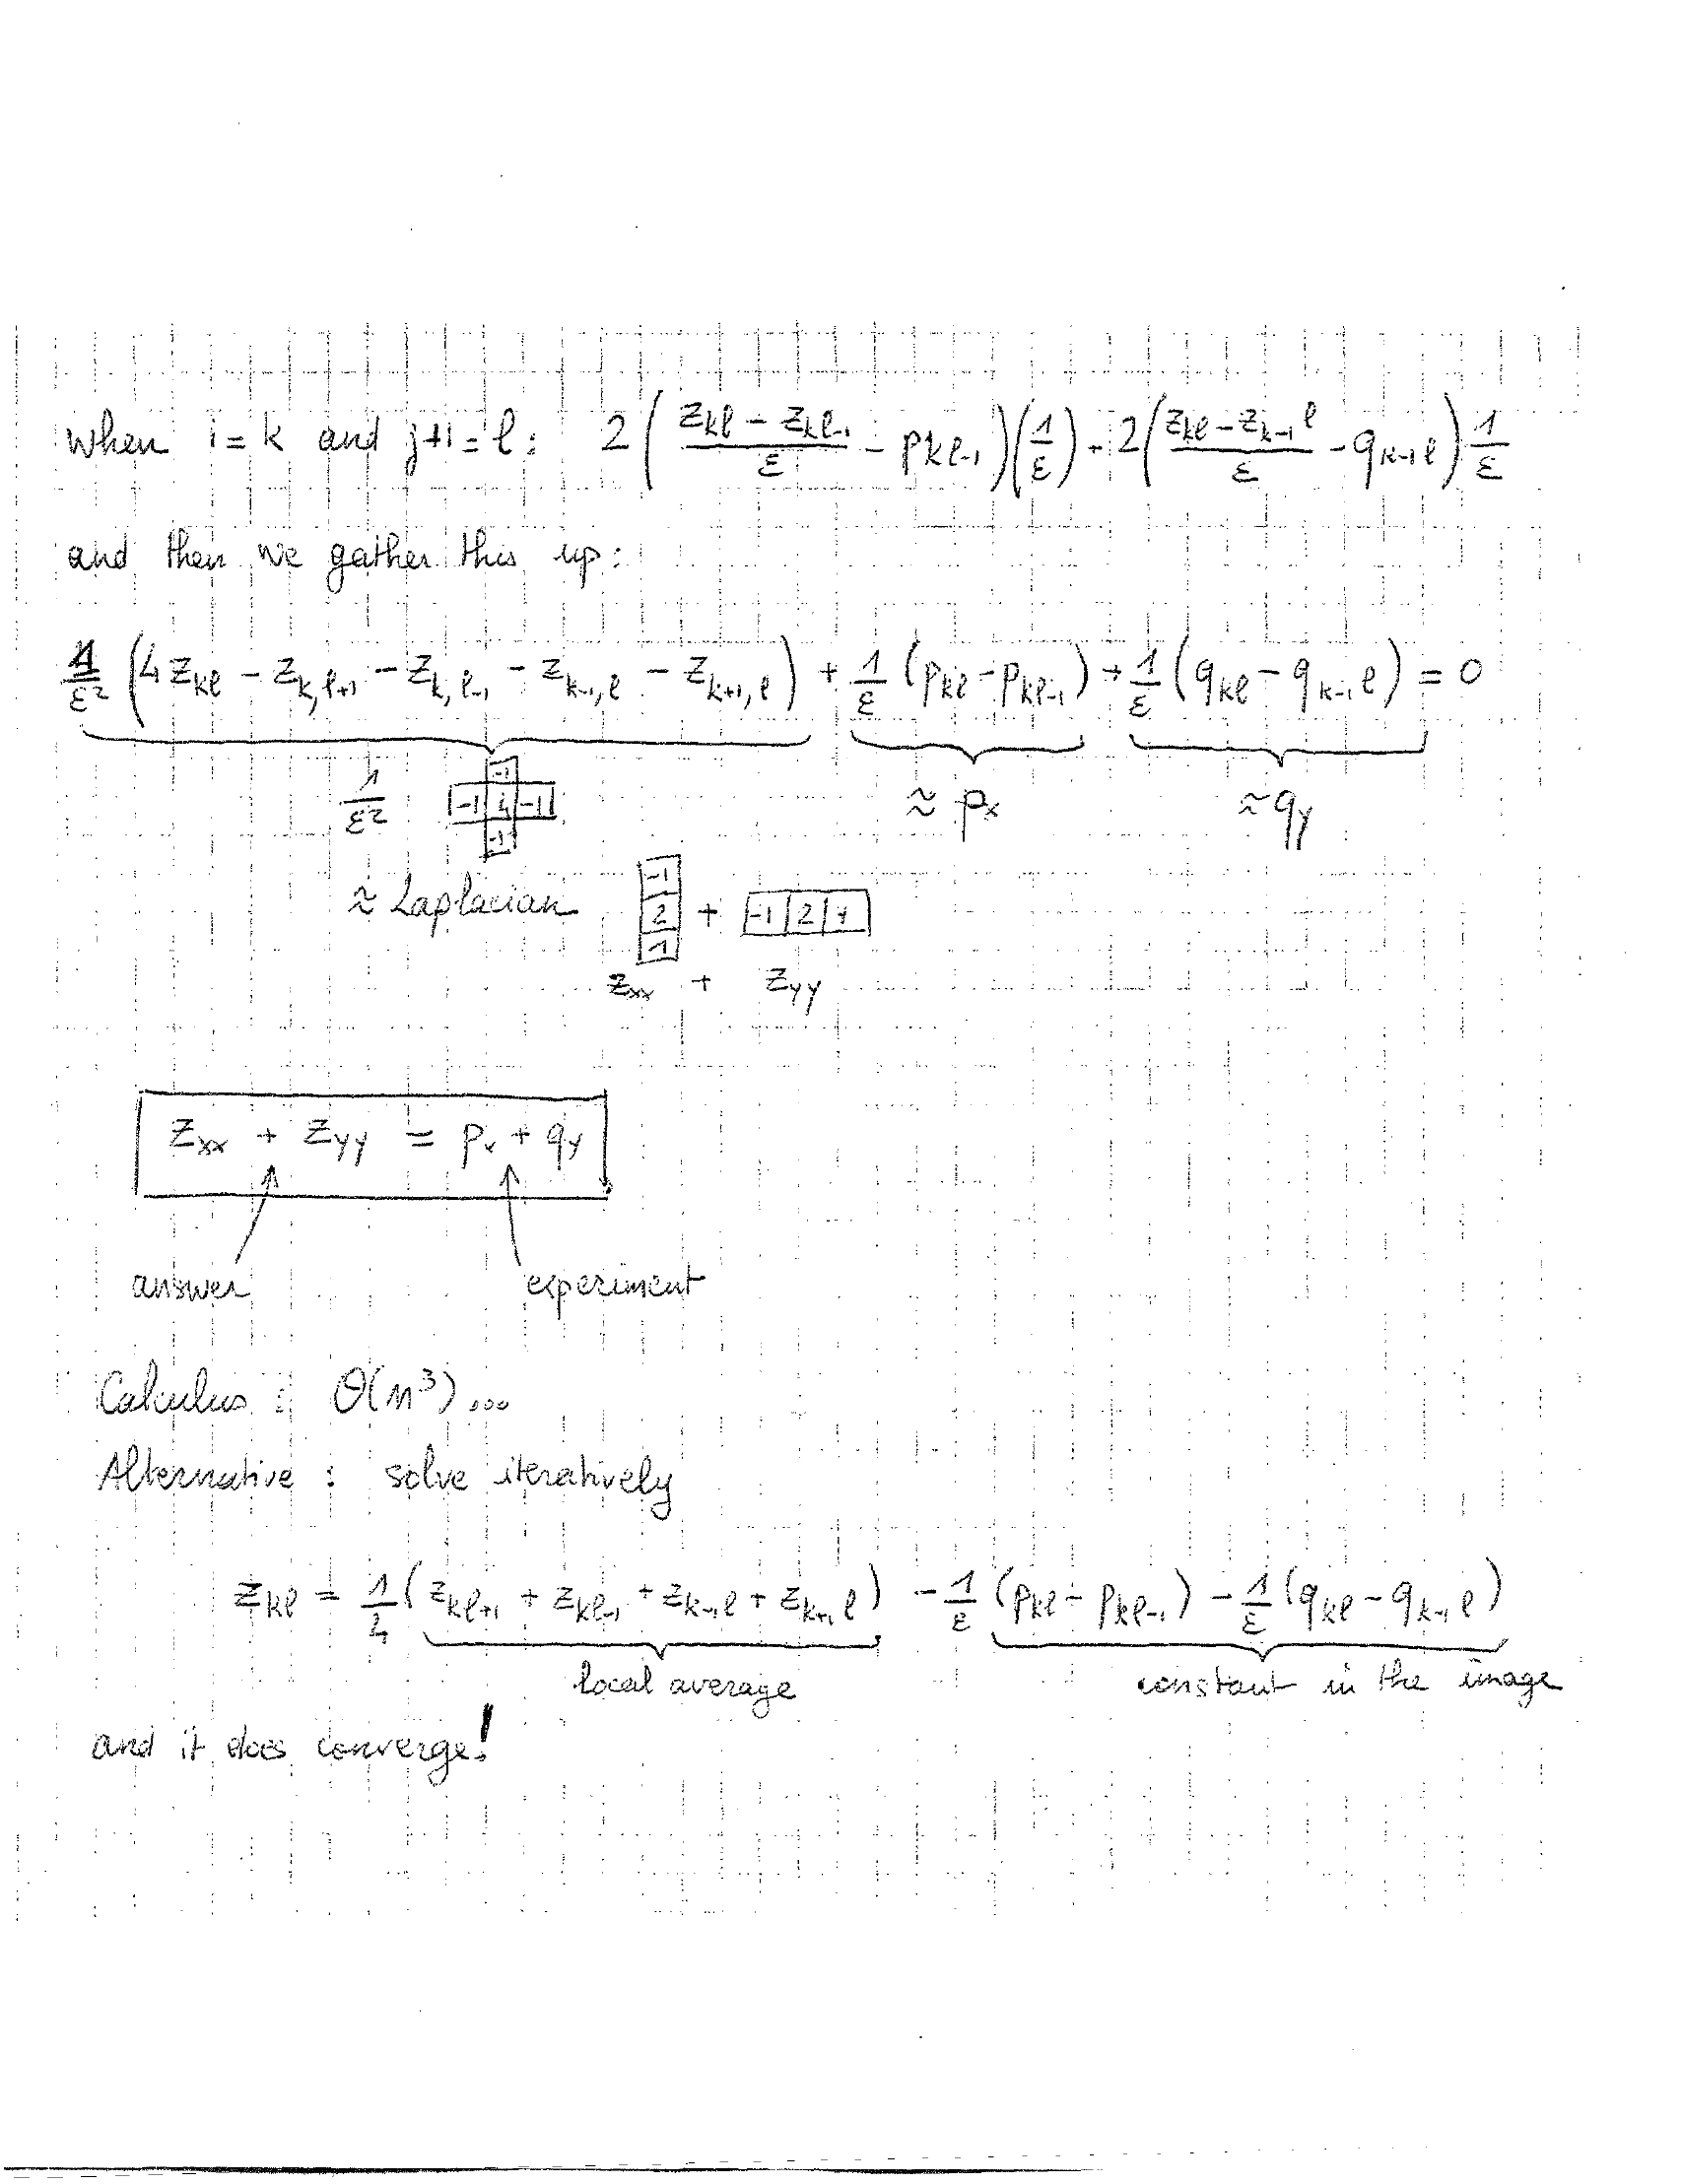 when i = k and j+1 = l : 2 ( (z_kl − z_kl-1)/ε − p_kl-1 ) (1/ε) + 2 ( (z_kl − z_k-1 l)/ε − q_k-1 l ) 1/ε
and then we gather this up :
1/ε² ( 4 z_kl − z_k,l+1 − z_k,l-1 − z_k-1,l − z_k+1,l ) + 1/ε ( p_kl − p_kl-1 ) + 1/ε ( q_kl − q_k-1 l ) = 0
-1
1/ε² -1 4 -1 ≈ p_x ≈ q_y
-1
-1
≈ Laplacian 2 + -1 2 1
1
z_xx + z_yy
z_xx + z_yy = p_x + q_y
answer experiment
Calculus : O(n³) ...
Alternative : solve iteratively
z_kl = 1/4 ( z_kl+1 + z_kl-1 + z_k-1 l + z_k+1 l ) − 1/ε ( p_kl − p_kl-1 ) − 1/ε ( q_kl − q_k-1 l )
local average constant in the image
and it does converge!